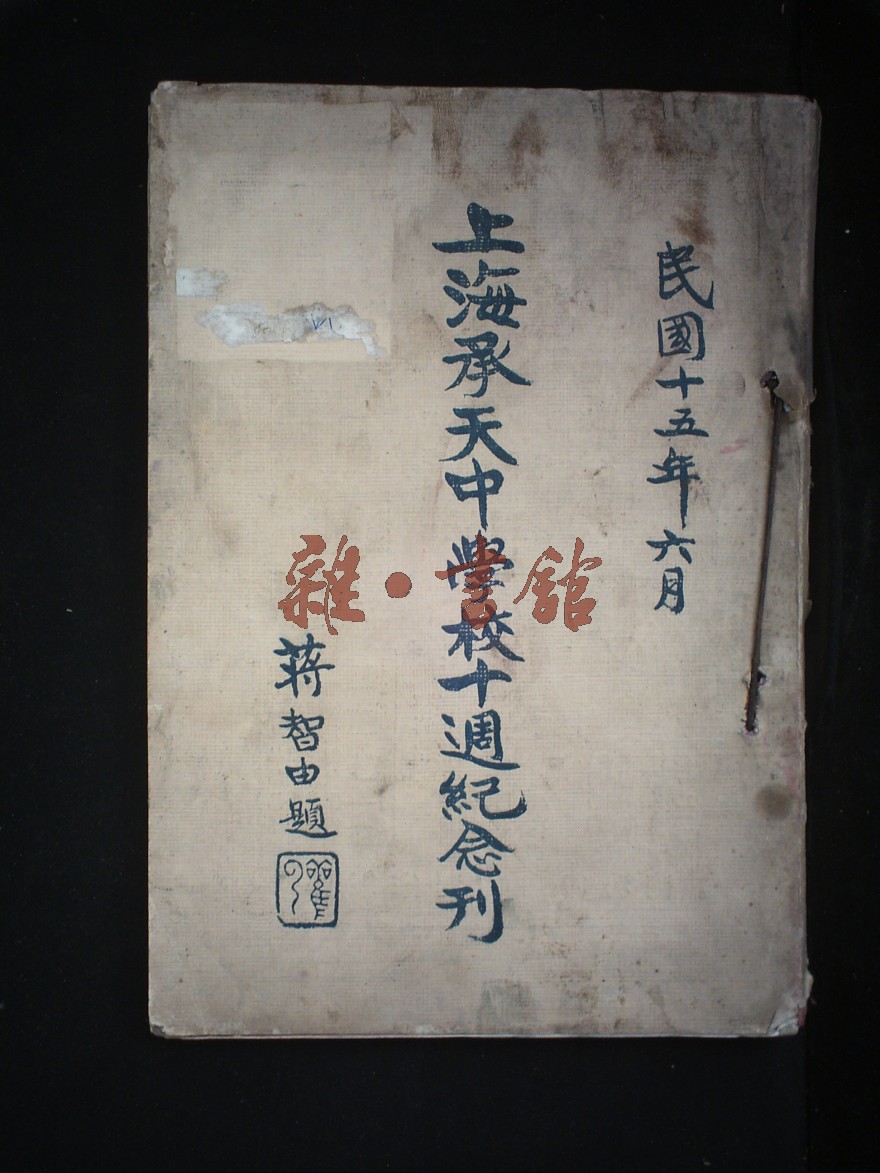 民國十五年六月
上海承天中學校十週紀念刊
蔣智由題
雜·書館